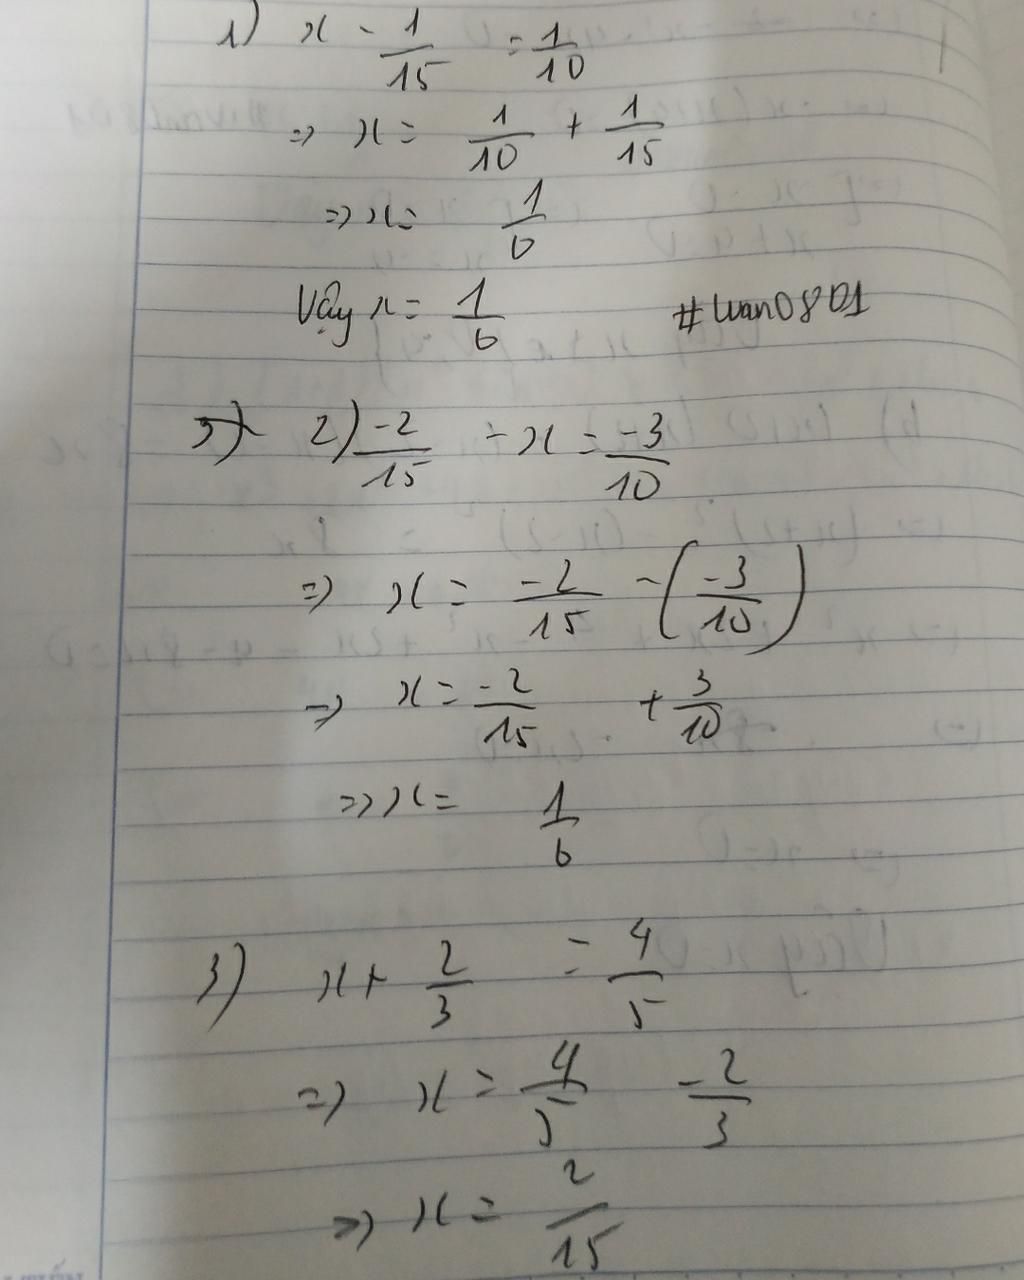 1) x - 1/15 = 1/10
=> x = 1/10 + 1/15
=> x = 1/6
Vậy x = 1/6 #wan0801
2) -2/15 - x = -3/10
=> x = -2/15 - (-3/10)
=> x = -2/15 + 3/10
=> x = 1/6
3) x + 2/3 = 4/5
=> x = 4/5 - 2/3
=> x = 2/15